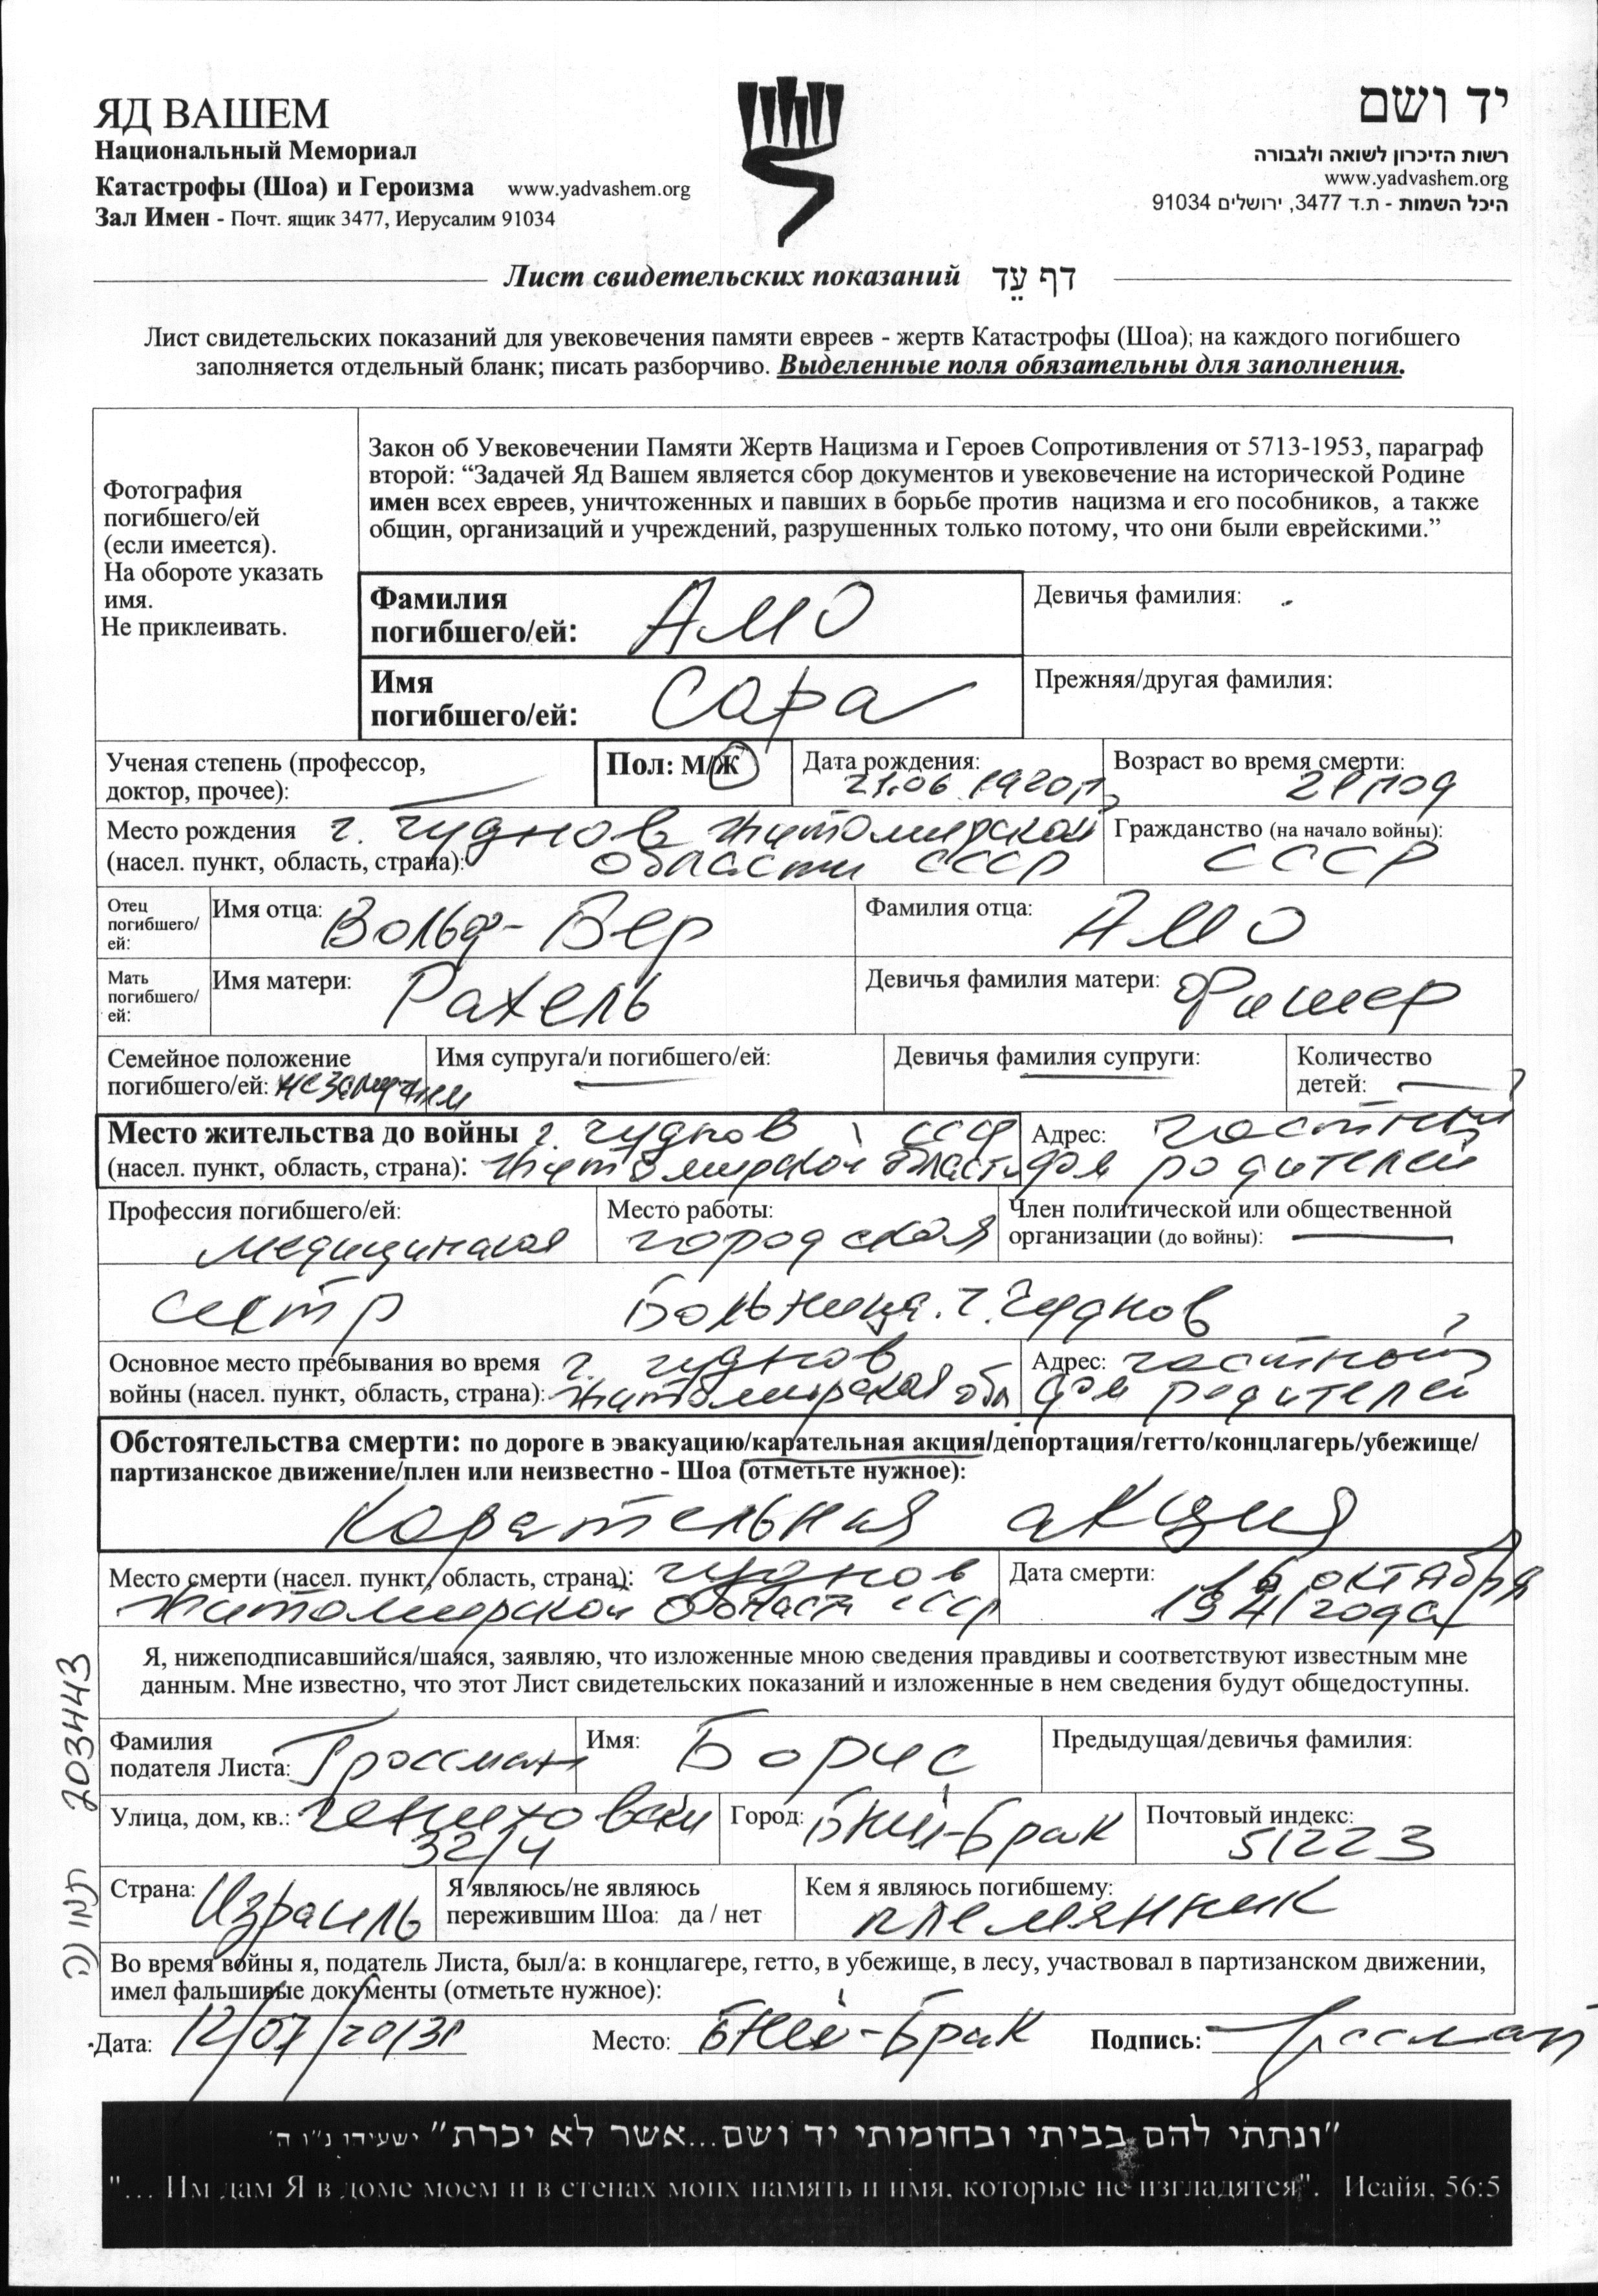 ЯД ВАШЕМ
Национальный Мемориал
Катастрофы (Шоа) и Героизма www.yadvashem.org
Зал Имен - Почт. ящик 3477, Иерусалим 91034
יד ושם
רשות הזיכרון לשואה ולגבורה
www.yadvashem.org
היכל השמות - ת.ד 3477, ירושלים 91034
Лист свидетельских показаний דף עֵד
Лист свидетельских показаний для увековечения памяти евреев - жертв Катастрофы (Шоа); на каждого погибшего
заполняется отдельный бланк; писать разборчиво. Выделенные поля обязательны для заполнения.
Фотография
погибшего/ей
(если имеется).
На обороте указать
имя.
Не приклеивать.
Закон об Увековечении Памяти Жертв Нацизма и Героев Сопротивления от 5713-1953, параграф
второй: “Задачей Яд Вашем является сбор документов и увековечение на исторической Родине
имен всех евреев, уничтоженных и павших в борьбе против нацизма и его пособников, а также
общин, организаций и учреждений, разрушенных только потому, что они были еврейскими.”
Фамилия
погибшего/ей: Амо
Девичья фамилия:
Имя
погибшего/ей: Сара
Прежняя/другая фамилия:
Ученая степень (профессор,
доктор, прочее):
Пол: М/Ж
Дата рождения:
21.06 1920г.
Возраст во время смерти:
21 год
Место рождения г. Чуднов Житомирской
(насел. пункт, область, страна): области СССР
Гражданство (на начало войны):
СССР
Отец
погибшего/
ей:
Имя отца: Вольф-Бер
Фамилия отца: Амо
Мать
погибшего/
ей:
Имя матери: Рахель
Девичья фамилия матери: Фишер
Семейное положение
погибшего/ей: незамужем
Имя супруга/и погибшего/ей:
Девичья фамилия супруги:
Количество
детей:
Место жительства до войны г. Чуднов СССР
(насел. пункт, область, страна): Житомирской област
Адрес: частный
дом родителей
Профессия погибшего/ей:
медицинская
Место работы:
городская
Член политической или общественной
организации (до войны):
сестр Больница. г. Чуднов
Основное место пребывания во время г. Чуднов
войны (насел. пункт, область, страна): Житомирская обл
Адрес: частный
дом родителей
Обстоятельства смерти: по дороге в эвакуацию/карательная акция/депортация/гетто/концлагерь/убежище/
партизанское движение/плен или неизвестно - Шоа (отметьте нужное):
Карательная акция
Место смерти (насел. пункт, область, страна): Чуднов
Житомирской области СССР
Дата смерти: 16 октября
1941 года
Я, нижеподписавшийся/шаяся, заявляю, что изложенные мною сведения правдивы и соответствуют известным мне
данным. Мне известно, что этот Лист свидетельских показаний и изложенные в нем сведения будут общедоступны.
Фамилия
подателя Листа: Гроссман
Имя: Борис
Предыдущая/девичья фамилия:
Улица, дом, кв.:
32/4
Город: Бней-Брак
Почтовый индекс:
51223
Страна: Израиль
Я являюсь/не являюсь
пережившим Шоа: да / нет
Кем я являюсь погибшему:
племянник
Во время войны я, податель Листа, был/а: в концлагере, гетто, в убежище, в лесу, участвовал в партизанском движении,
имел фальшивые документы (отметьте нужное):
Дата: 12/07/2013г Место: Бней-Брак Подпись: Гроссман
203443
"ונתתי להם בביתי ובחומותי יד ושם...אשר לא יכרת" ישעיהו נ"ו ה'
"... Им дам Я в доме моем и в стенах моих память и имя, которые не изгладятся". Исайя, 56:5